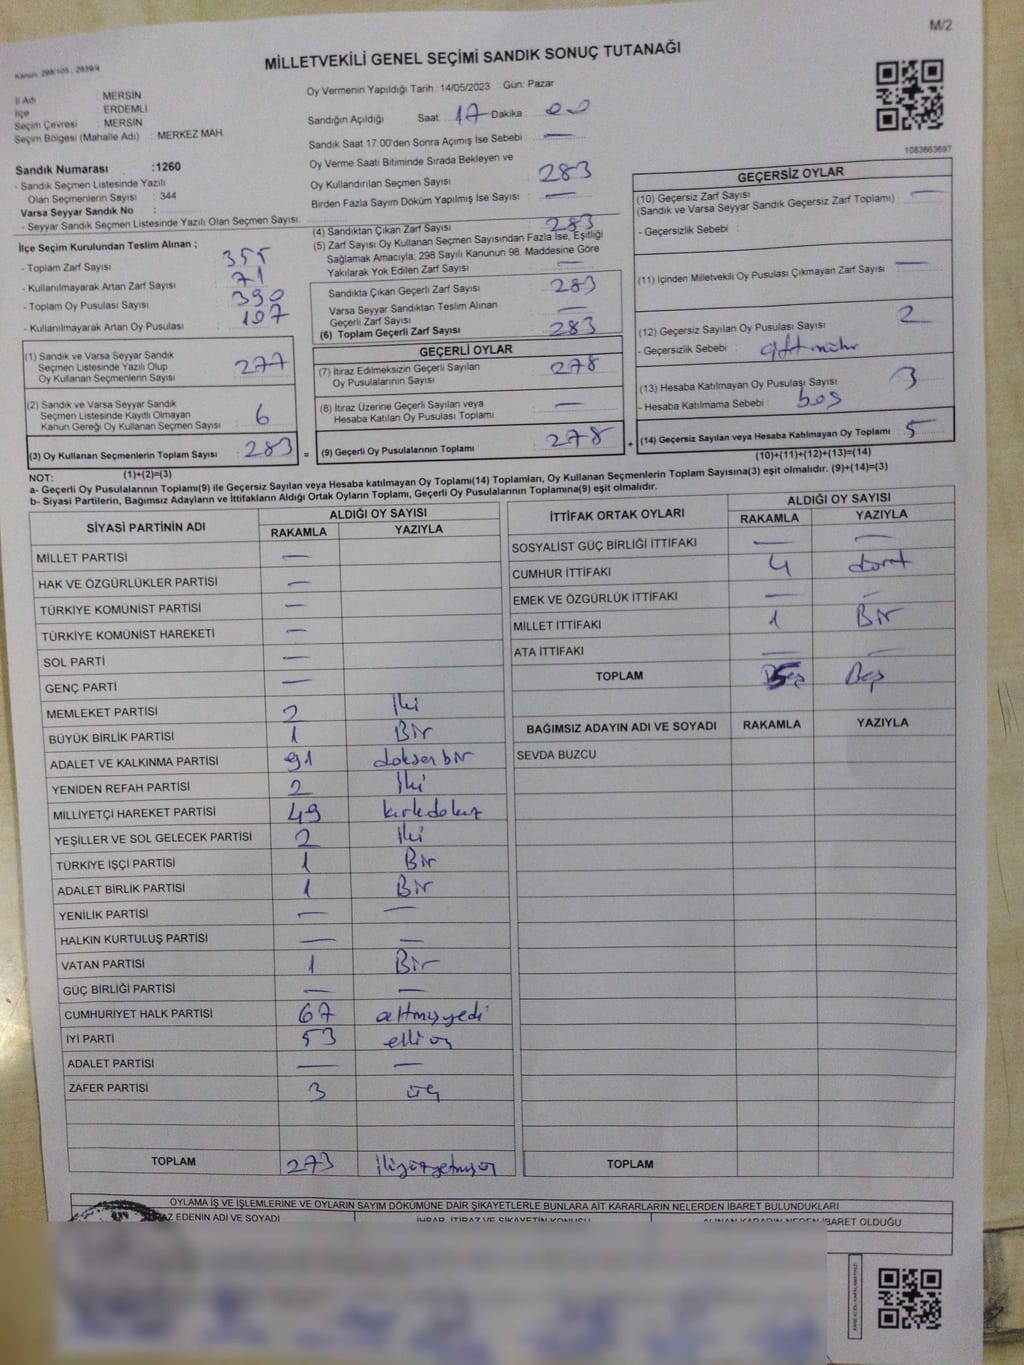 M/2
MİLLETVEKİLİ GENEL SEÇİMİ SANDIK SONUÇ TUTANAĞI
Kanun: 298/105, 2839/4
İl Adı MERSİN
İlçe ERDEMLİ
Seçim Çevresi : MERSİN
Seçim Bölgesi (Mahalle Adı) : MERKEZ MAH
Sandık Numarası :1260
- Sandık Seçmen Listesinde Yazılı
Olan Seçmenlerin Sayısı : 344
Varsa Seyyar Sandık No :
- Seyyar Sandık Seçmen Listesinde Yazılı Olan Seçmen Sayısı:
Oy Vermenin Yapıldığı Tarih : 14/05/2023 Gün: Pazar
Sandığın Açıldığı Saat: 17 Dakika 00
Sandık Saat 17.00'den Sonra Açımış İse Sebebi : —
Oy Verme Saati Bitiminde Sırada Bekleyen ve
Oy Kullandırılan Seçmen Sayısı 283
Birden Fazla Sayım Döküm Yapılmış İse Sayısı : —
1083663697
İlçe Seçim Kurulundan Teslim Alınan ;
- Toplam Zarf Sayısı : 355
- Kullanılmayarak Artan Zarf Sayısı : 71
- Toplam Oy Pusulası Sayısı : 390
- Kullanılmayarak Artan Oy Pusulası : 107
(1) Sandık ve Varsa Seyyar Sandık
Seçmen Listesinde Yazılı Olup
Oy Kullanan Seçmenlerin Sayısı 277
(2) Sandık ve Varsa Seyyar Sandık
Seçmen Listesinde Kayıtlı Olmayan
Kanun Gereği Oy Kullanan Seçmen Sayısı 6
(3) Oy Kullanan Seçmenlerin Toplam Sayısı 283
(4) Sandıktan Çıkan Zarf Sayısı : 283
(5) Zarf Sayısı Oy Kullanan Seçmen Sayısından Fazla İse, Eşitliği
Sağlamak Amacıyla, 298 Sayılı Kanunun 98. Maddesine Göre
Yakılarak Yok Edilen Zarf Sayısı —
Sandıkta Çıkan Geçerli Zarf Sayısı : 283
Varsa Seyyar Sandıktan Teslim Alınan
Geçerli Zarf Sayısı : —
(6) Toplam Geçerli Zarf Sayısı : 283
GEÇERLİ OYLAR
(7) İtiraz Edilmeksizin Geçerli Sayılan
Oy Pusulalarının Sayısı : 278
(8) İtiraz Üzerine Geçerli Sayılan veya
Hesaba Katılan Oy Pusulası Toplamı : —
= (9) Geçerli Oy Pusulalarının Toplamı 278
GEÇERSİZ OYLAR
(10) Geçersiz Zarf Sayısı —
(Sandık ve Varsa Seyyar Sandık Geçersiz Zarf Toplamı)
- Geçersizlik Sebebi :
(11) İçinden Milletvekili Oy Pusulası Çıkmayan Zarf Sayısı —
(12) Geçersiz Sayılan Oy Pusulası Sayısı 2
- Geçersizlik Sebebi : çift mühr
(13) Hesaba Katılmayan Oy Pusulası Sayısı 3
- Hesaba Katılmama Sebebi : boş
+ (14) Geçersiz Sayılan veya Hesaba Katılmayan Oy Toplamı 5
(1)+(2)=(3)
(10)+(11)+(12)+(13)=(14)
NOT:
a- Geçerli Oy Pusulalarının Toplamı(9) ile Geçersiz Sayılan veya Hesaba katılmayan Oy Toplamı(14) Toplamları, Oy Kullanan Seçmenlerin Toplam Sayısına(3) eşit olmalıdır. (9)+(14)=(3)
b- Siyasi Partilerin, Bağımsız Adayların ve İttifakların Aldığı Ortak Oyların Toplamı, Geçerli Oy Pusulalarının Toplamına(9) eşit olmalıdır.
SİYASİ PARTİNİN ADI ALDIĞI OY SAYISI
RAKAMLA YAZIYLA
MİLLET PARTİSİ —
HAK VE ÖZGÜRLÜKLER PARTİSİ —
TÜRKİYE KOMÜNİST PARTİSİ —
TÜRKİYE KOMÜNİST HAREKETİ —
SOL PARTİ —
GENÇ PARTİ —
MEMLEKET PARTİSİ 2 İki
BÜYÜK BİRLİK PARTİSİ 1 Bir
ADALET VE KALKINMA PARTİSİ 91 doksanbir
YENİDEN REFAH PARTİSİ 2 İki
MİLLİYETÇİ HAREKET PARTİSİ 49 kırkdokuz
YEŞİLLER VE SOL GELECEK PARTİSİ 2 İki
TÜRKİYE İŞÇİ PARTİSİ 1 Bir
ADALET BİRLİK PARTİSİ 1 Bir
YENİLİK PARTİSİ — —
HALKIN KURTULUŞ PARTİSİ — —
VATAN PARTİSİ 1 Bir
GÜÇ BİRLİĞİ PARTİSİ — —
CUMHURİYET HALK PARTİSİ 67 altmışyedi
İYİ PARTİ 53 elli üç
ADALET PARTİSİ — —
ZAFER PARTİSİ 3 üç
TOPLAM 273 İkiyüzyetmişüç
İTTİFAK ORTAK OYLARI ALDIĞI OY SAYISI
RAKAMLA YAZIYLA
SOSYALİST GÜÇ BİRLİĞİ İTTİFAKI — —
CUMHUR İTTİFAKI 4 dört
EMEK VE ÖZGÜRLÜK İTTİFAKI — —
MİLLET İTTİFAKI 1 Bir
ATA İTTİFAKI — —
TOPLAM 5 Beş
BAĞIMSIZ ADAYIN ADI VE SOYADI RAKAMLA YAZIYLA
SEVDA BUZCU
TOPLAM
OYLAMA İŞ VE İŞLEMLERİNE VE OYLARIN SAYIM DÖKÜMÜNE DAİR ŞİKAYETLERLE BUNLARA AİT KARARLARIN NELERDEN İBARET BULUNDUKLARI
EDENİN ADI VE SOYADI İHBAR, İTİRAZ VE ŞİKAYETİN KONUSU ALINAN KARARIN NEDEN İBARET OLDUĞU